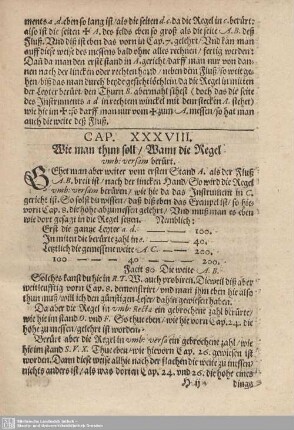 ments a d eben so lang ist / als die seiten d e. da die Regel in e. berürt:
also ist die seiten A. des felds eben so groß als die seite A B. deß
Fluß. Und diß ist eben das vorn in Cap. 7. gelehrt / Und kan man
auff diese weise des messens bald ohne alles rechnen / fertig werden:
Dañ da man den erst stand in A. gericht darff man nur von dan-
nen nach der lincken oder rechten hand / neben dem Fluß / so weit ge-
hen / biß das man durch die absehen die Regel in mitten
der Leyter berürt. den Thurn B. abermahl sihest (doch das die seite
des Instruments a d in rechtem winckel mit dem stecken A. stehe)
wie hie im darff man nur vom zum A. messen / so hat man
auch die weite deß Fluß.
CAP. XXXVIII.
Wie man thun soll / Wann die Regel
vmb: versam berürt.
GEhet man aber weiter vom ersten Stand A. als der Fluß
A B. breit ist / nach der lincken Hand. So wird die Regel
vmb: versam berüren / wie hie da das Instrument in C.
gericht ist. So solstu wissen / daß diß eben das Exempel ist / so hie-
vorn Cap. 8. die höhe abzumessen gelehrt / Und muß man es eben
wie dort gesagt in die Regel setzen. Nemblich:
Erst die gantze Leyter a d. — 100.
In mitten die berürte zahl in e. — 40.
Letzlich die gemessene weite A C. — 200.
100 — 40 — 200.
Facit 80. Die weite A B.
Solches kanstu hie in R. T. W. auch probiren. Dieweil diß aber
weitleufftig vorn Cap. 8. demonstrirt / und man ihm eben hie also
thun muß will ich den günstigen Leser / dahin gewiesen haben.
Da aber die Regel in vmb: Recta ein gebrochene zahl berürte /
wie hie im stand O. und F. So thu eben / wie hie vorn Cap. 24. die
höhe zu messen / gelehrt ist worden.
Berürt aber die Regel in vmb: versa ein gebrochene zahl / wie
hie im stand S. V. X. Thue eben / wie hievorn Cap. 26. gewiesen ist
worden. Dann diese weise allhie nach der flache zu messen /
nichts anders ist / als was dorten Cap. 24. und 26. die höhe eines
H ij dings